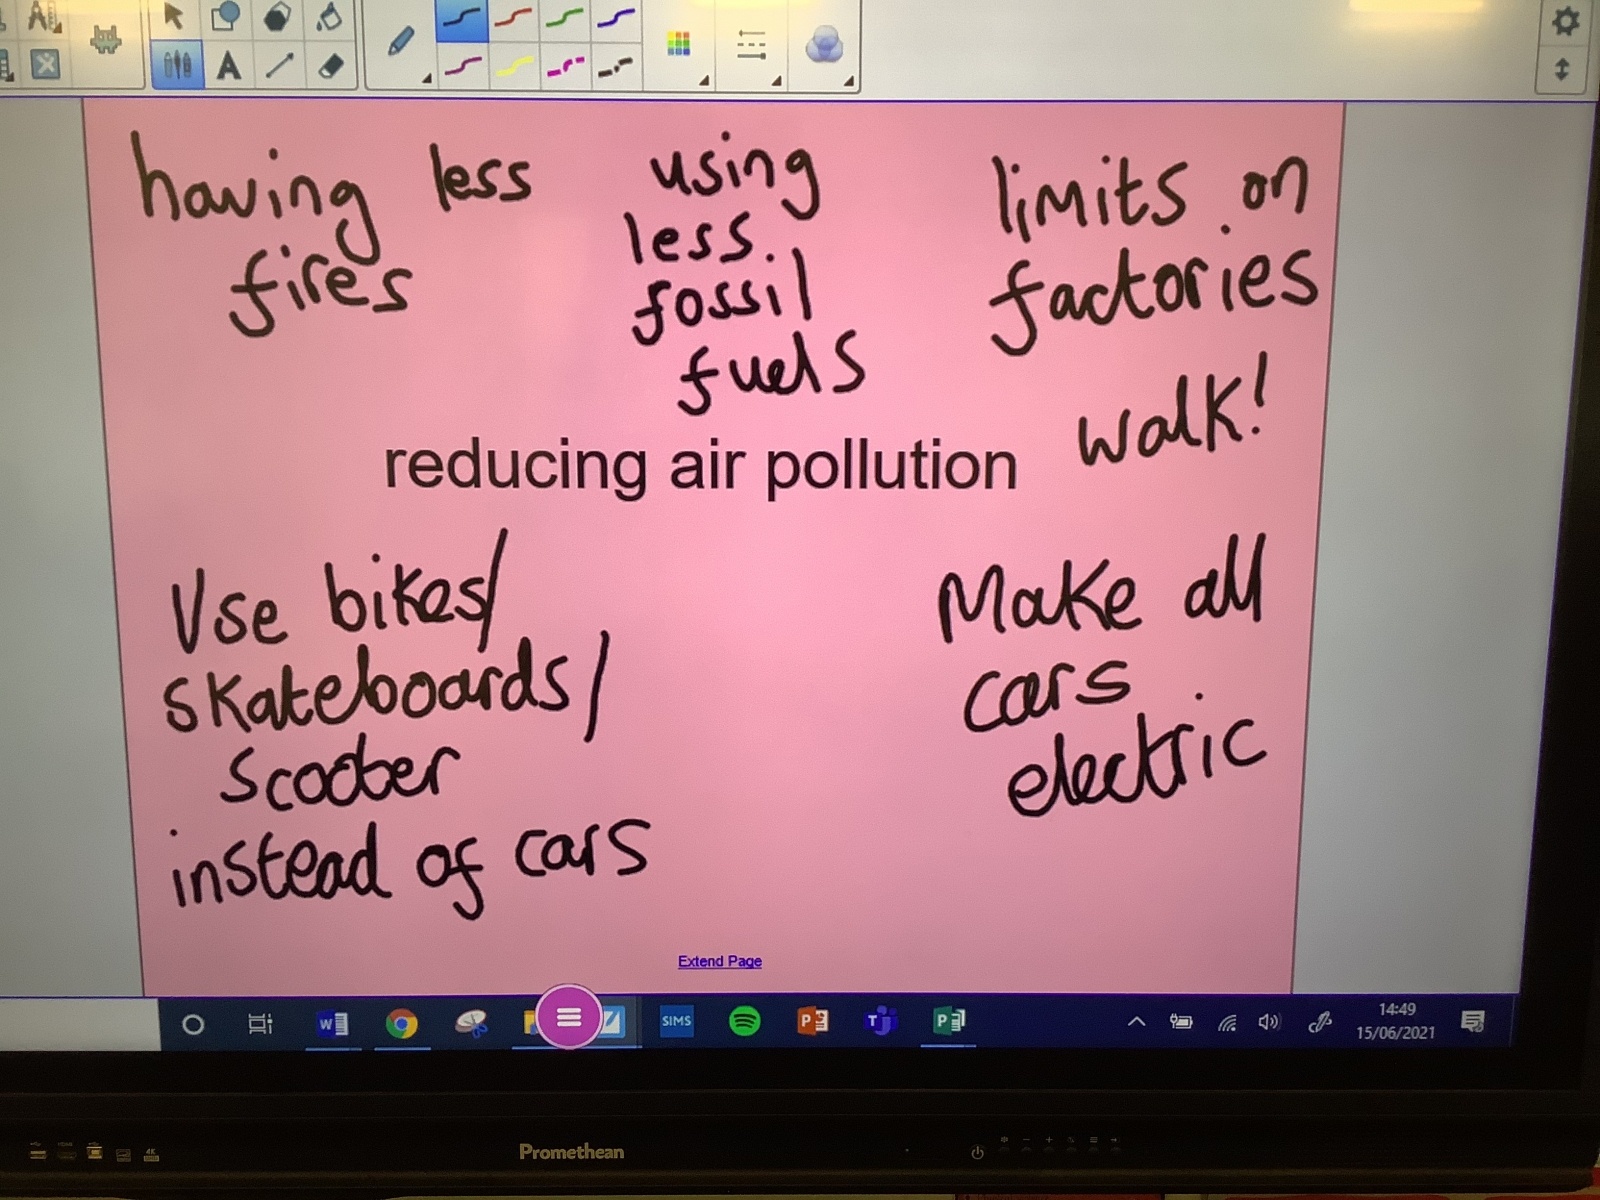 having less
fires
using
less
fossil
fuels
limits on
factories
walk!
reducing air pollution
Use bikes/
skateboards/
scooter
instead of cars
Make all
cars
electric
Extend Page
SIMS
14:49
15/06/2021
Promethean